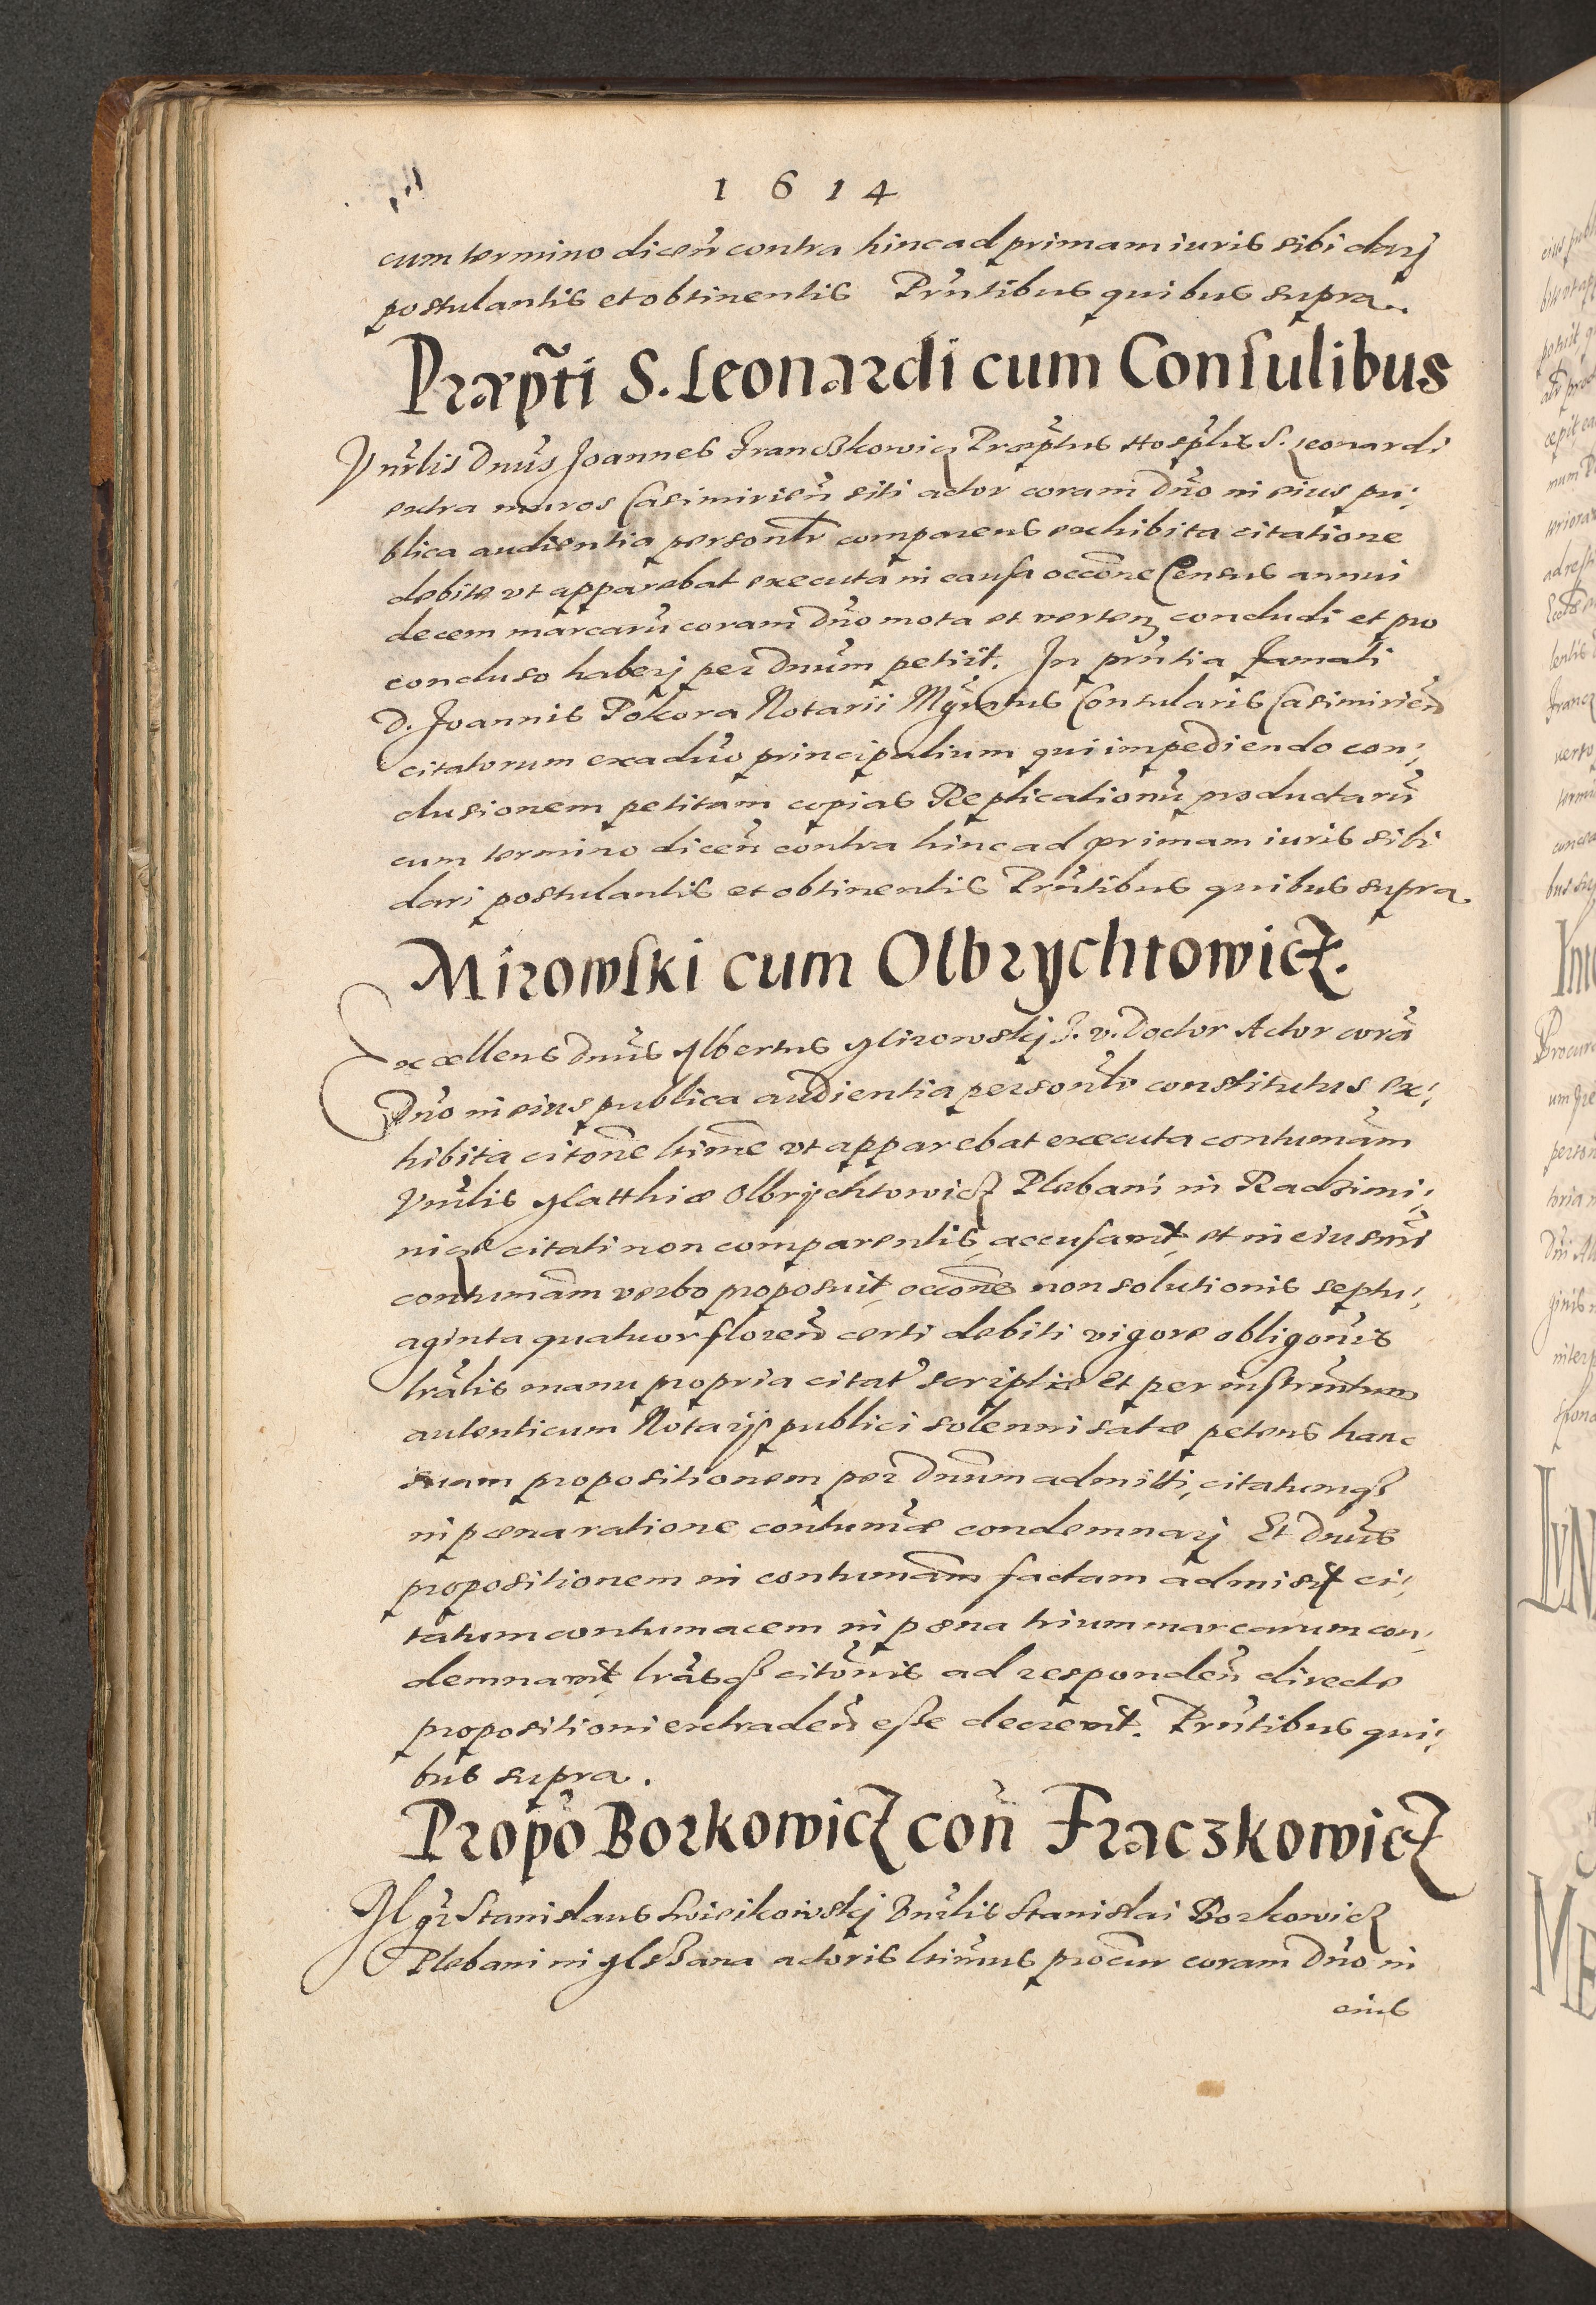 1614
cum termino diceñ contra hinc ad primam iuris sibi darj
postulantis et obtinentis Prñtibus quibus supra.
Præpti S. Leonardi cum Consulibus
Vnrlis Dnus Joannes Franczkowicz Præptus Hosplis S. Leonardi
extra muros Casimirieñ siti actor coram Dño in eius pu-
blica audientia personlr comparens exhibita citatione
debite vt apparebat executa in causa occõne Census annui
decem marcarũ coram Dño mota et verteñ concludi et pro
concluso haberj per Dnũm petiit. In prñtia Famati
D. Joannis Pokora Notarii Mgratus Consularis Casimirieñ
citatorum ex aduo principalium qui impediendo con-
clusionem petitam copias Replicationũ productarũ
cum termino diceñ contra hinc ad primam iuris sibi
dari postulantis et obtinentis Prñtibus quibus supra.
Mirowski cum Olbrychtowicz.
Excellens Dnũs Albertus Mirowskj J. v. Doctor Actor corã
Dño in eius publica audientia personlr constitutus ex-
hibita citõne ltime vt apparebat executa contumãm
Vnrlis Matthiæ Olbrychtowicz Plebani in Radzimi-
nice citati non comparentis accusauit et in eiusmi
contumãm verbo proposuit occõne non solutionis septu-
aginta quatuor floreñ certi debiti vigore obligõnis
lralis manu propria citati scriptæ et per instrumtum
autenticum Notarij publici solennisatæ petens hanc
suam propositionem per Dnũm admitti, citatumqz
in pœna ratione contumæ condemnarj Et Dnũs
propositionem in contumãm factam admisit ci-
tatum contumacem in pœna trium marcarum con-
demnauit lrasqz citõnis ad respondeñ directe
propositioni extradeñ esse decreuit. Prñtibus qui-
bus supra.
Propo Borkowicz coñ Fraczkowicz
Mgr Stanislaus Swieikowskj Vnrlis Stanislai Borkowicz
Plebani in Mszana actoris ltimus procur coram Dño in
eius